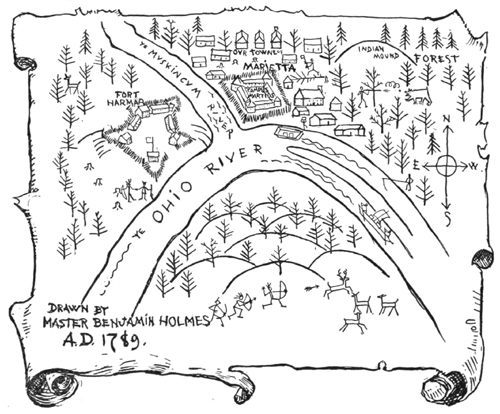 YE MUSKINGUM
RIVER
OUR TOWN
MARIETTA
CAMPUS
MARTIUS
INDIAN
MOUND
FOREST
FORT
HARMAR
N
E
W
S
YE OHIO RIVER
DRAWN BY
MASTER BENJAMIN HOLMES
A.D. 1789.